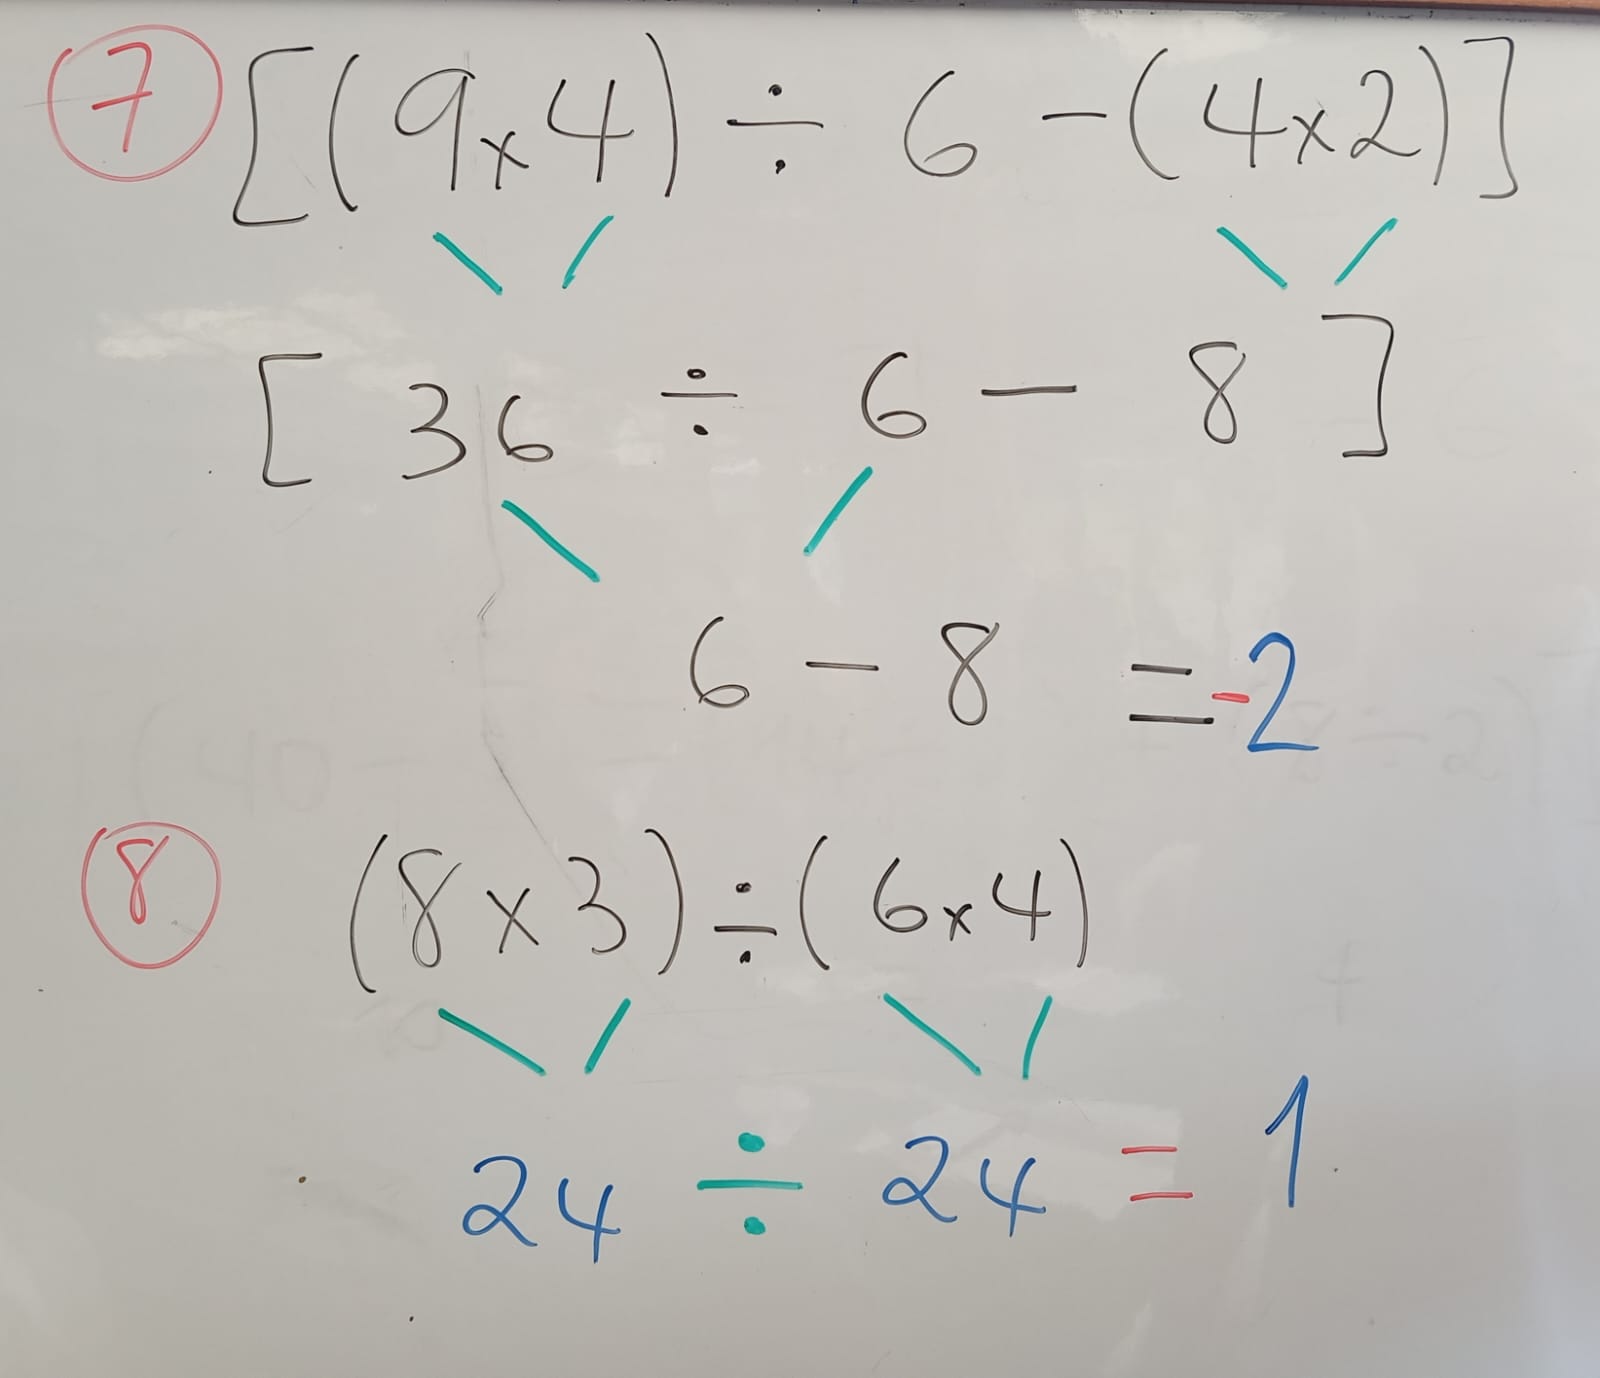 7 [(9×4) ÷ 6 -(4×2)]
[ 36 ÷ 6 - 8 ]
6 - 8 = -2
8 (8 × 3) ÷ (6×4)
24 ÷ 24 = 1